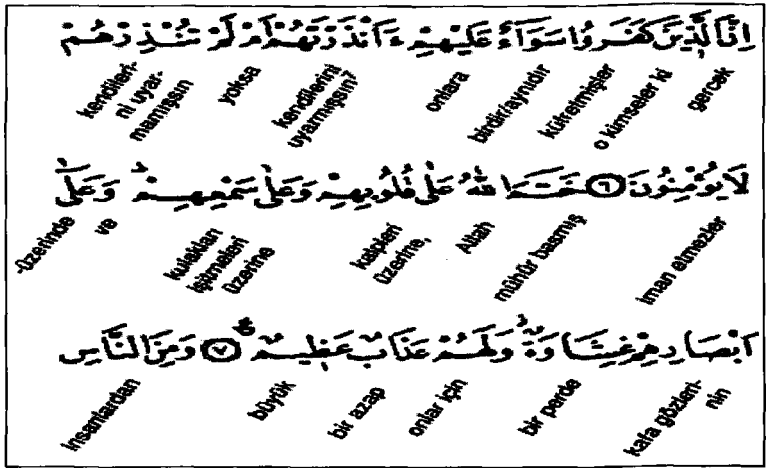 اِنَّ الَّذ۪ينَ كَفَرُوا سَوَٓاءٌ عَلَيْهِمْ ءَاَنْذَرْتَهُمْ اَمْ لَمْ تُنْذِرْهُمْ
gerçek o kimseler ki küfretmişler birdir/aynıdır onlara kendilerini uyarmışsın? yoksa kendileri-ni uyar-mamışsın
لَا يُؤْمِنُونَ ﴿٦﴾ خَتَمَ اللّٰهُ عَلٰى قُلُوبِهِمْ وَعَلٰى سَمْعِهِمْۜ وَعَلٰٓى
iman etmezler mühür basmış Allah kalpleri üzerine, kulakları işitmeleri üzerine ve -üzerinde
اَبْصَارِهِمْ غِشَاوَةٌۘ وَلَهُمْ عَذَابٌ عَظ۪يمٌ۟ ﴿٧﴾ وَمِنَ النَّاسِ
kafa gözleri-nin bir perde onlar için bir azap büyük insanlardan